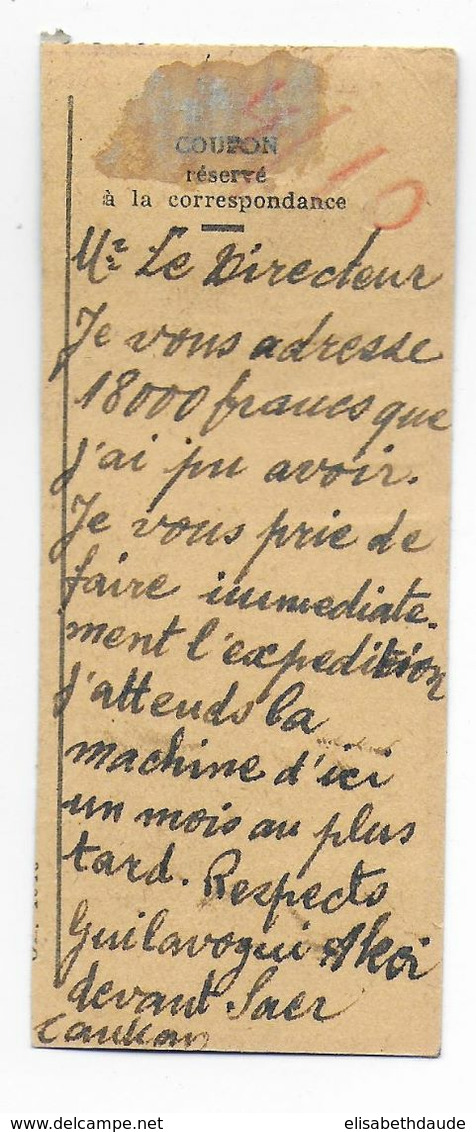 5/10
COUPON
réservé
à la correspondance
Mr Le Directeur
Je vous adresse
18000 francs que
j'ai pu avoir.
Je vous prie de
faire immediate-
ment l'expedition
j'attends la
machine d'ici
un mois au plus
tard. Respects
Guilavogui Akoi
devant Saer
elisabethdaude